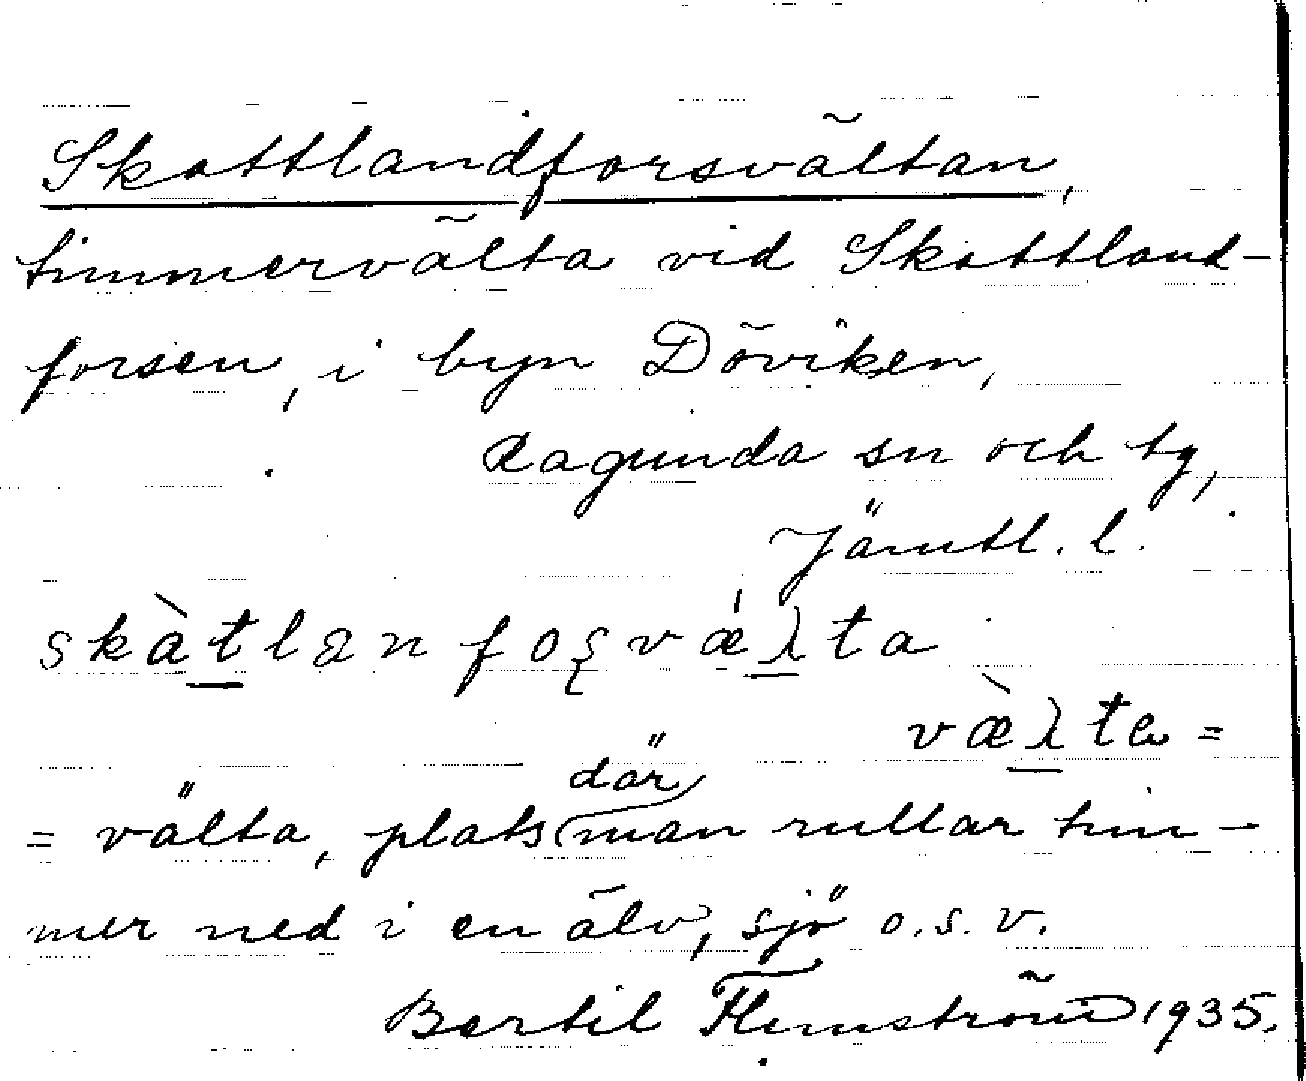 Skottlandforsvältan,
timmervälta vid Skottland-
forsen, i byn Döviken,
Ragunda sn och tg,
Jämtl. l.
væ̀λta =
= välta, plats där man rullar tim-
mer ned i en älv, sjö o.s.v.
Bertil Flemström 1935.